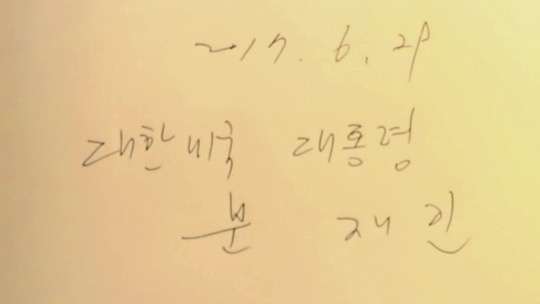 2017. 6. 28
대한미국 대통령
문 재인